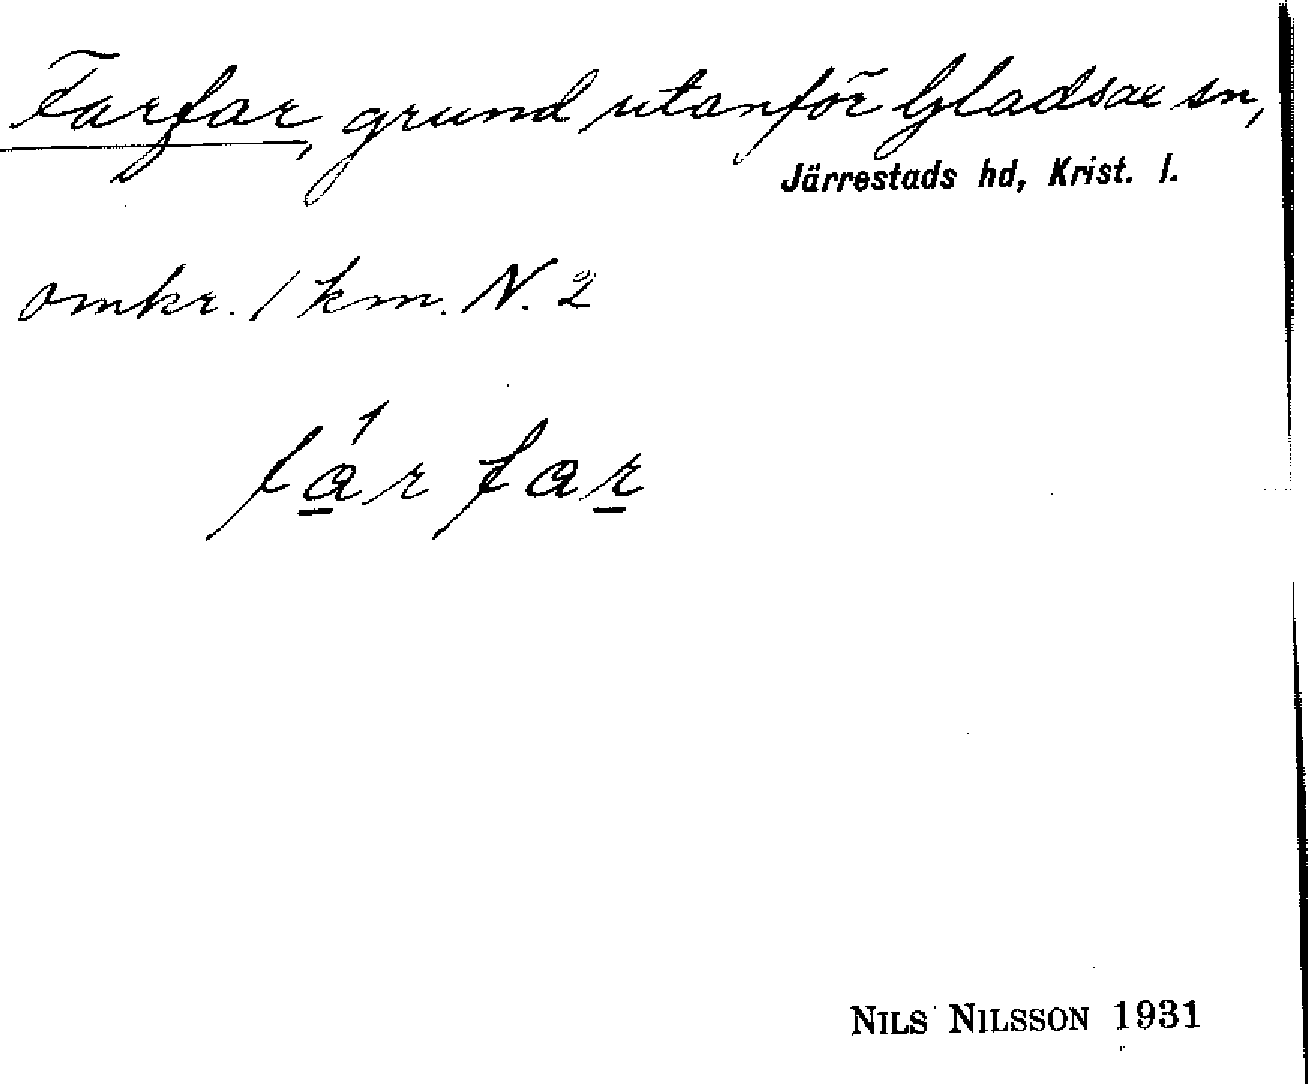 Farfar, grund utanför Gladsax sn,
Järrestads hd, Krist. l.
omkr. 1 km. N. 2
fárfar
NILS NILSSON 1931